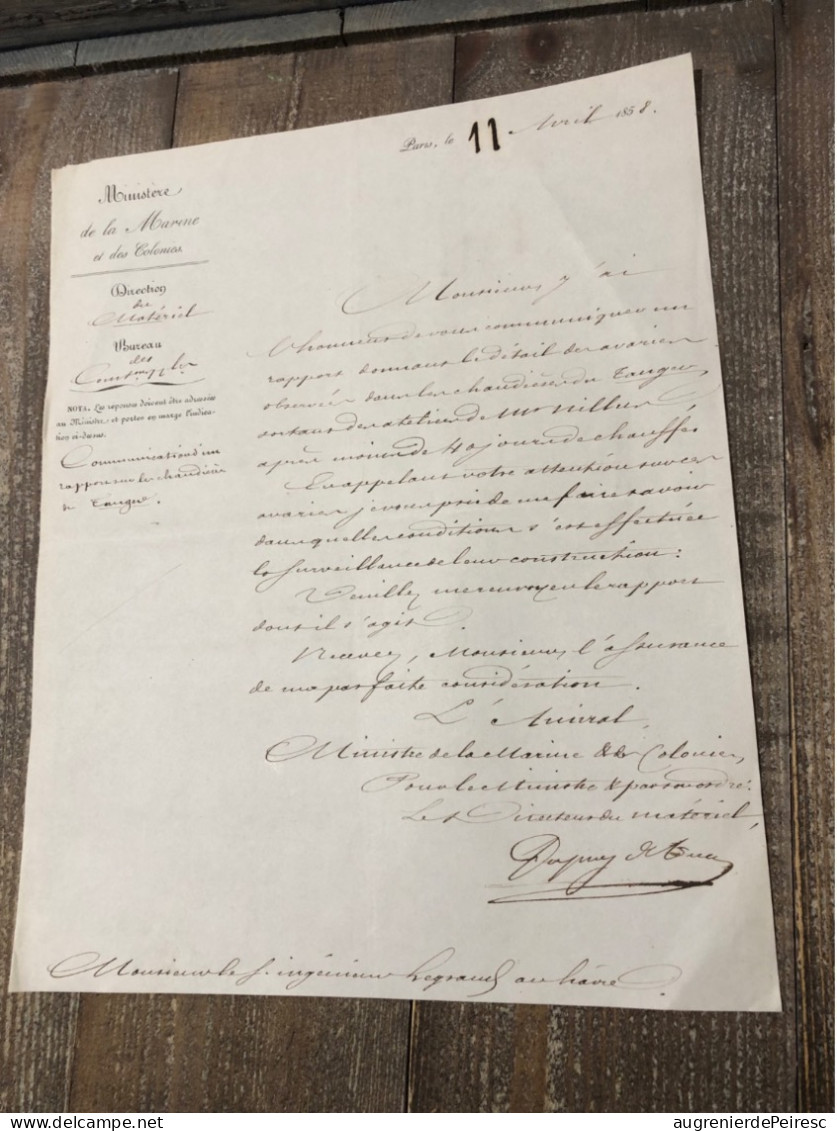 Paris, le 11 Avril 1858.
Ministère
de la Marine
et des Colonies.
Direction
du
Matériel
Bureau
des
NOTA. Les réponses doivent être adressées
au Ministre, et porter en marge l'indica-
tion ci-dessus.
Communication d'un
rapport sur les chaudières
du Tanger.
Monsieur, j'ai
l'honneur de vous communiquer un
rapport donnant le détail des avaries
observées dans les chaudières du Tanger,
sortant des ateliers de Mr Nillus,
après moins de 40 jours de chauffe.
En appelant votre attention sur ces
avaries je vous prie de me faire savoir
dans quelles conditions s'est effectuée
la surveillance de leur construction.
Veuillez me renvoyer le rapport
dont il s'agit.
Recevez, Monsieur, l'assurance
de ma parfaite considération.
L'Amiral,
Ministre de la Marine & des Colonies,
Pour le Ministre & par son ordre:
Le Directeur du matériel,
Dupuy de Lôme
Monsieur le s. ingénieur Legrand au havre.
augrenierdePeiresc